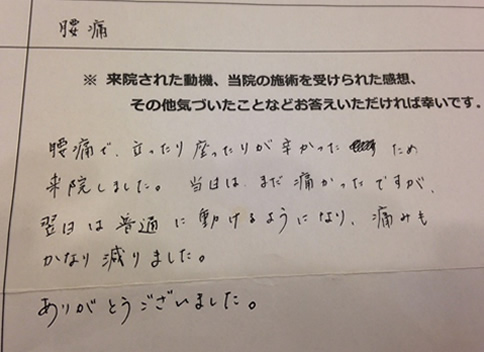 腰痛
※ 来院された動機、当院の施術を受けられた感想、
その他気づいたことなどお答えいただければ幸いです。
腰痛で、立ったり座ったりが辛かった ため
来院しました。 当日は、まだ痛かったですが、
翌日は普通に動けるようになり、痛みも
かなり減りました。
ありがとうございました。